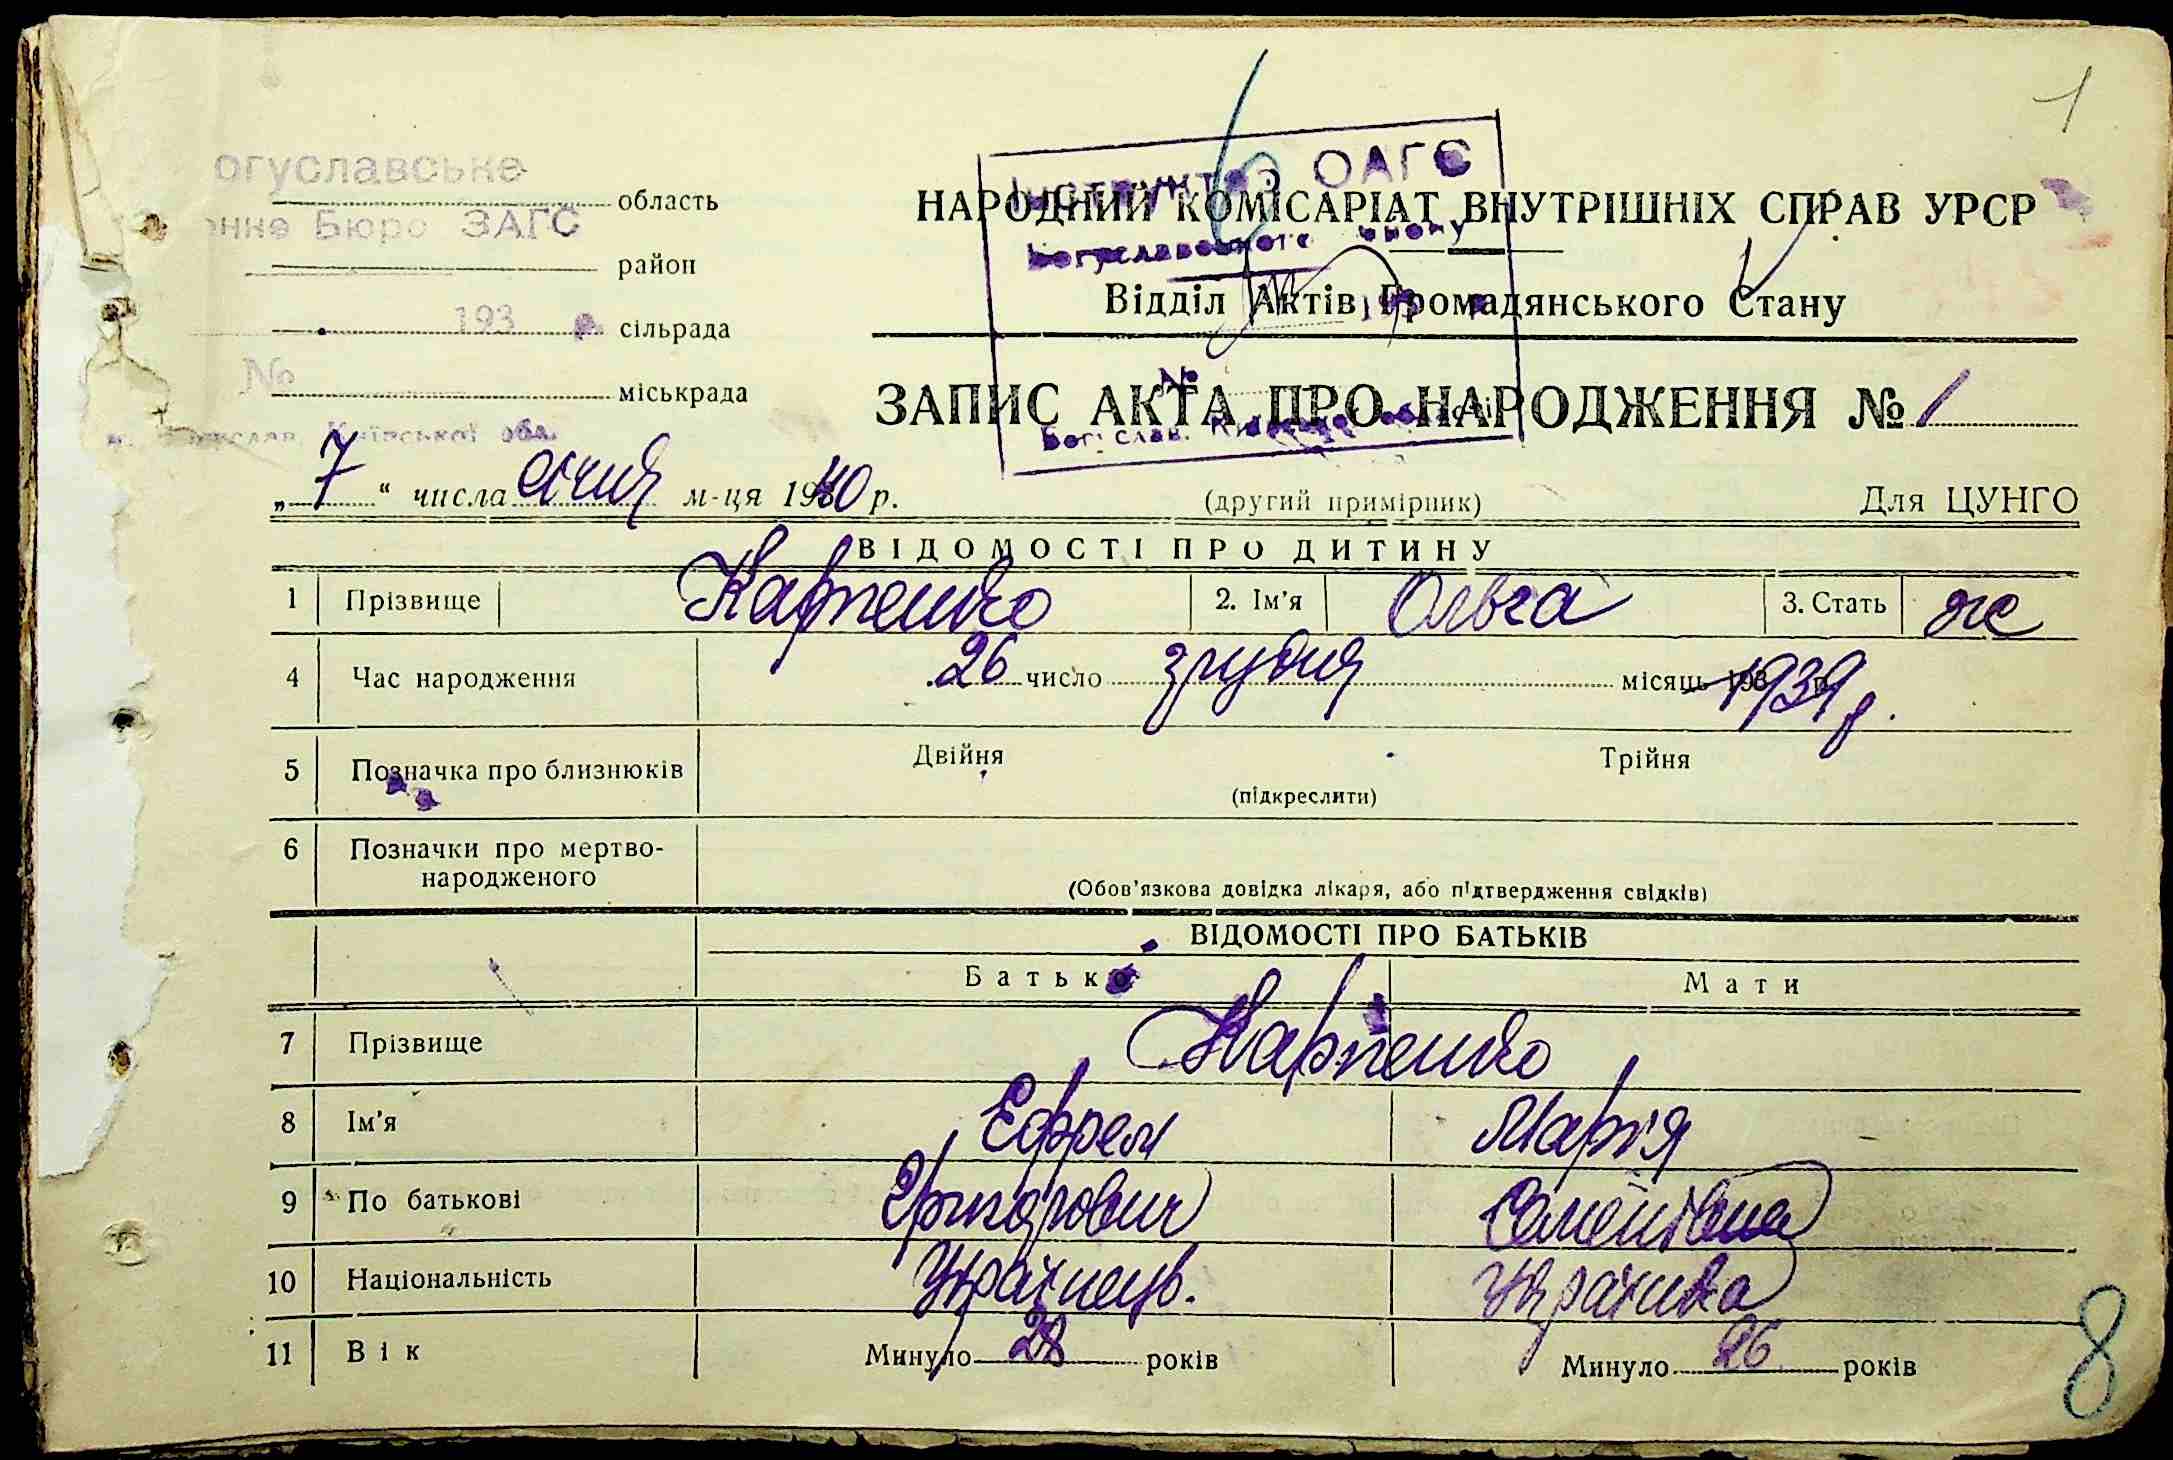 1
огуславське
область
нне Бюро ЗАГС
район
193
сільрада
№
міськрада
Київської обл.
Інструктор ОАГС
Богуславського
№
Богуслав, Київської області
НАРОДНИЙ КОМІСАРІАТ ВНУТРІШНІХ СПРАВ УРСР
Відділ Актів Громадянського Стану
ЗАПИС АКТА ПРО НАРОДЖЕННЯ № 1
„7“ числа січня м-ця 1940 р.
(другий примірник)
Для ЦУНГО
ВІДОМОСТІ ПРО ДИТИНУ
1 Прізвище Карпенко 2. Ім'я Ольга 3. Стать ж
4 Час народження 26 число грудня місяць 1939 р.
5 Позначка про близнюків Двійня Трійня
(підкреслити)
6 Позначки про мертво-
народженого
(Обов'язкова довідка лікаря, або підтвердження свідків)
ВІДОМОСТІ ПРО БАТЬКІВ
Батько Мати
7 Прізвище Карпенко
8 Ім'я Ефрем Марія
9 По батькові Григорович Семенівна
10 Національність Українець. Українка
11 Вік Минуло 28 років Минуло 26 років
8